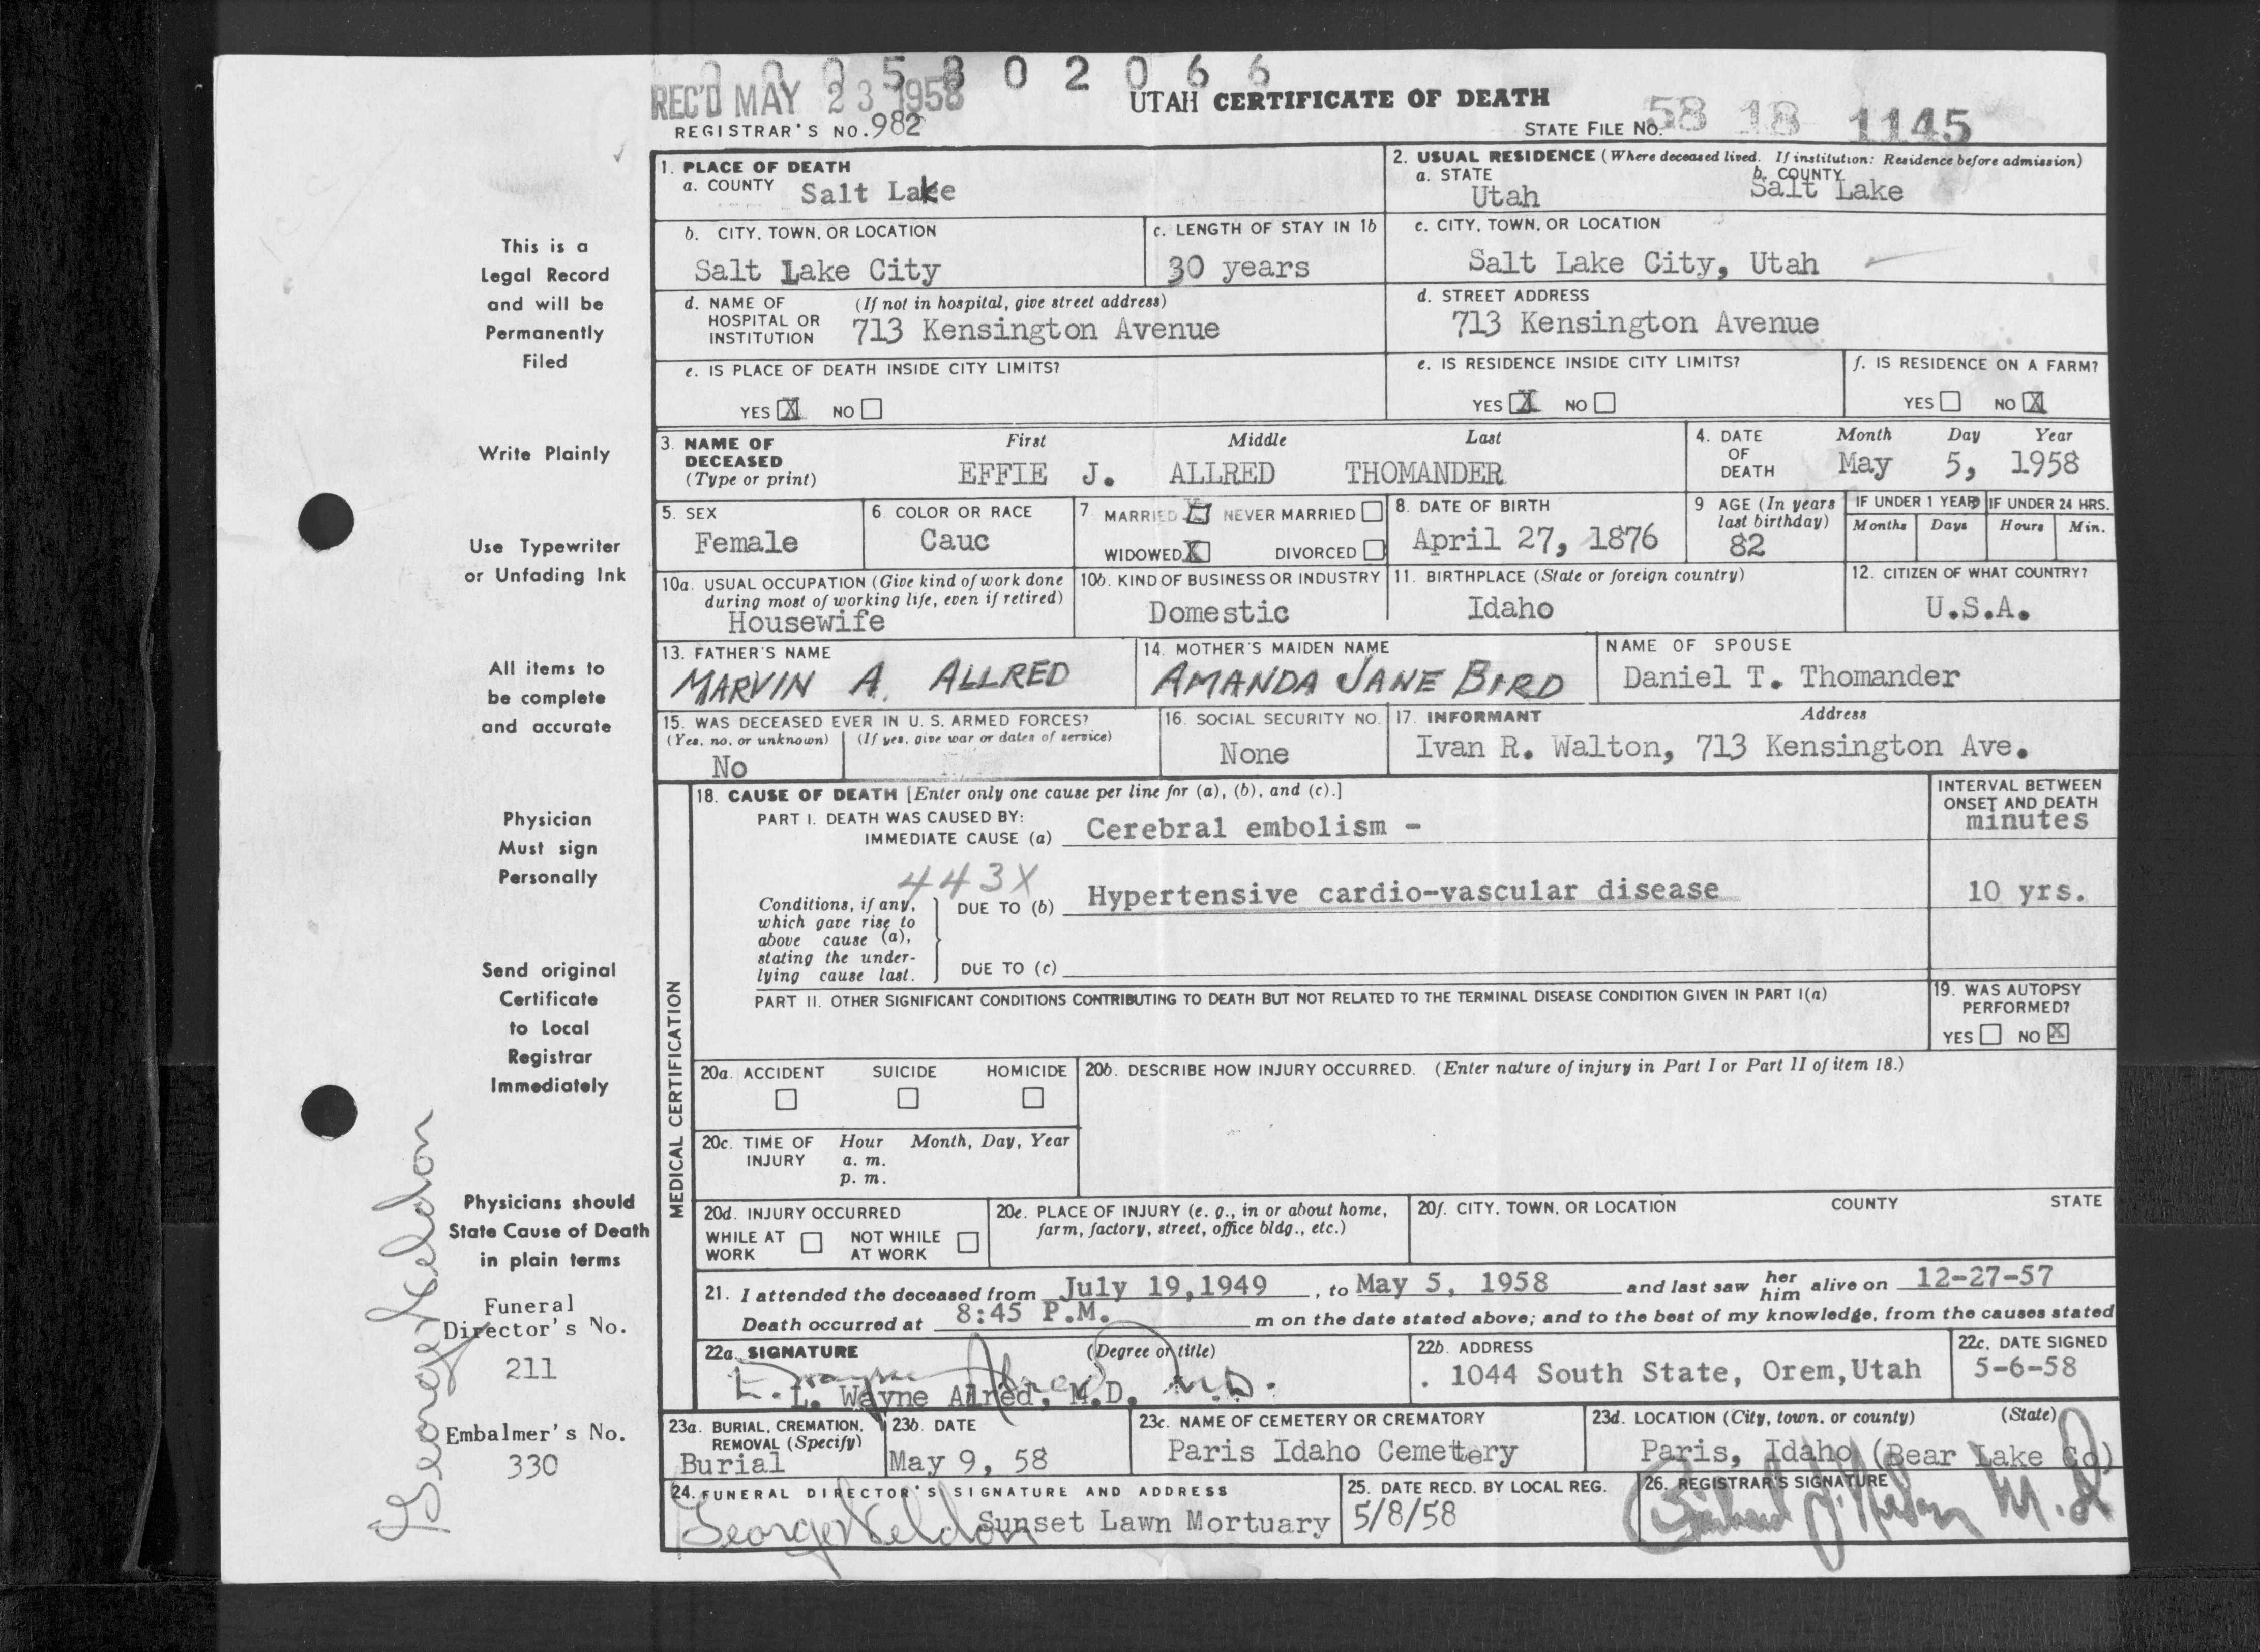 0 0 0 5 8 0 2 0 6 6
REC'D MAY 23 1958
UTAH CERTIFICATE OF DEATH
REGISTRAR'S NO. 982
STATE FILE NO. 58 18 1145
1. PLACE OF DEATH
a. COUNTY Salt Lake
2. USUAL RESIDENCE (Where deceased lived. If institution: Residence before admission)
a. STATE Utah b. COUNTY Salt Lake
b. CITY, TOWN, OR LOCATION
Salt Lake City
c. LENGTH OF STAY IN 1b
30 years
c. CITY, TOWN, OR LOCATION
Salt Lake City, Utah
d. NAME OF HOSPITAL OR INSTITUTION (If not in hospital, give street address)
713 Kensington Avenue
d. STREET ADDRESS
713 Kensington Avenue
e. IS PLACE OF DEATH INSIDE CITY LIMITS?
YES X NO
e. IS RESIDENCE INSIDE CITY LIMITS?
YES X NO
f. IS RESIDENCE ON A FARM?
YES NO X
3. NAME OF DECEASED (Type or print)
First Middle Last
EFFIE J. ALLRED THOMANDER
4. DATE OF DEATH
Month Day Year
May 5, 1958
5. SEX
Female
6. COLOR OR RACE
Cauc
7. MARRIED NEVER MARRIED
WIDOWED X DIVORCED
8. DATE OF BIRTH
April 27, 1876
9 AGE (In years last birthday)
82
IF UNDER 1 YEAR
Months Days
IF UNDER 24 HRS.
Hours Min.
10a. USUAL OCCUPATION (Give kind of work done during most of working life, even if retired)
Housewife
10b. KIND OF BUSINESS OR INDUSTRY
Domestic
11. BIRTHPLACE (State or foreign country)
Idaho
12. CITIZEN OF WHAT COUNTRY?
U.S.A.
13. FATHER'S NAME
MARVIN A. ALLRED
14. MOTHER'S MAIDEN NAME
AMANDA JANE BIRD
NAME OF SPOUSE
Daniel T. Thomander
15. WAS DECEASED EVER IN U. S. ARMED FORCES?
(Yes, no, or unknown) (If yes, give war or dates of service)
No
16. SOCIAL SECURITY NO.
None
17. INFORMANT Address
Ivan R. Walton, 713 Kensington Ave.
MEDICAL CERTIFICATION
18. CAUSE OF DEATH [Enter only one cause per line for (a), (b), and (c).]
PART I. DEATH WAS CAUSED BY:
IMMEDIATE CAUSE (a) Cerebral embolism -
INTERVAL BETWEEN ONSET AND DEATH
minutes
443X
Conditions, if any, which gave rise to above cause (a), stating the underlying cause last.
DUE TO (b) Hypertensive cardio-vascular disease
10 yrs.
DUE TO (c)
PART II. OTHER SIGNIFICANT CONDITIONS CONTRIBUTING TO DEATH BUT NOT RELATED TO THE TERMINAL DISEASE CONDITION GIVEN IN PART I(a)
19. WAS AUTOPSY PERFORMED?
YES NO X
20a. ACCIDENT SUICIDE HOMICIDE
20b. DESCRIBE HOW INJURY OCCURRED. (Enter nature of injury in Part I or Part II of item 18.)
20c. TIME OF INJURY Hour Month, Day, Year
a. m.
p. m.
20d. INJURY OCCURRED
WHILE AT WORK NOT WHILE AT WORK
20e. PLACE OF INJURY (e. g., in or about home, farm, factory, street, office bldg., etc.)
20f. CITY, TOWN, OR LOCATION COUNTY STATE
21. I attended the deceased from July 19,1949, to May 5, 1958 and last saw her him alive on 12-27-57
Death occurred at 8:45 P.M. m on the date stated above; and to the best of my knowledge, from the causes stated
22a. SIGNATURE (Degree or title)
L. Wayne Allred M.D.
L. Wayne Allred, M.D.
22b. ADDRESS
. 1044 South State, Orem,Utah
22c. DATE SIGNED
5-6-58
23a. BURIAL, CREMATION, REMOVAL (Specify)
Burial
23b. DATE
May 9, 58
23c. NAME OF CEMETERY OR CREMATORY
Paris Idaho Cemetery
23d. LOCATION (City, town, or county) (State)
Paris, Idaho (Bear Lake Co)
24. FUNERAL DIRECTOR'S SIGNATURE AND ADDRESS
George Neldon Sunset Lawn Mortuary
25. DATE RECD. BY LOCAL REG.
5/8/58
26. REGISTRAR'S SIGNATURE
M.D.
This is a
Legal Record
and will be
Permanently
Filed
Write Plainly
Use Typewriter
or Unfading Ink
All items to
be complete
and accurate
Physician
Must sign
Personally
Send original
Certificate
to Local
Registrar
Immediately
Physicians should
State Cause of Death
in plain terms
Funeral
Director's No.
211
Embalmer's No.
330
George Neldon